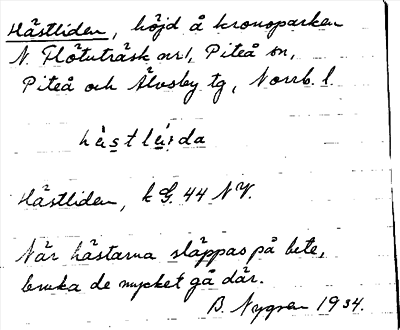 Hästliden, höjd å kronoparken
N. Flötuträsk nr 1, Piteå sn,
Piteå och Älvsby tg, Norrb. l.
hästlìda
Hästliden, k G. 44 NV.
När hästarna släppas på bete,
bruka de mycket gå där.
B. Nygren 1934.